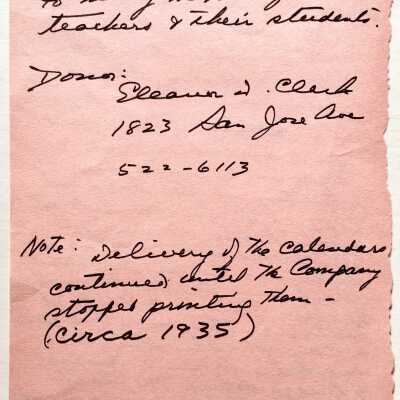 to
teachers & their students.
Donor:
Eleanor D. Clark
1823 San Jose Ave
522-6113
Note: Delivery of the calendars
continued until the Company
stopped printing them -
(circa 1935)